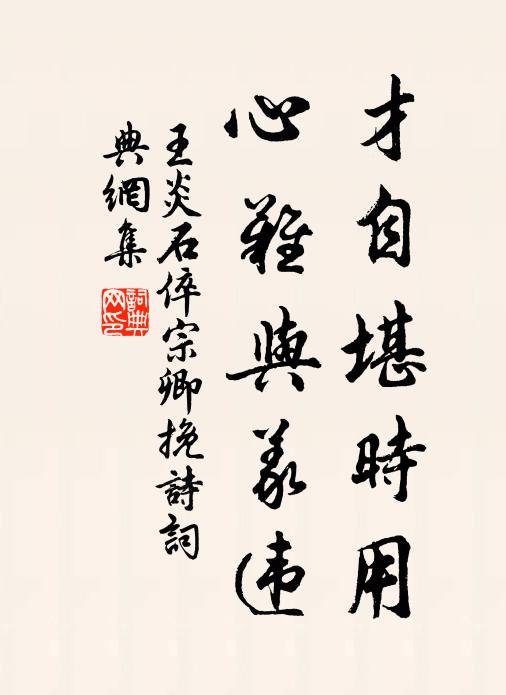 才自堪時用
心難與義違
王炎石倅宗卿挽詩詞
典網集
詞典網印